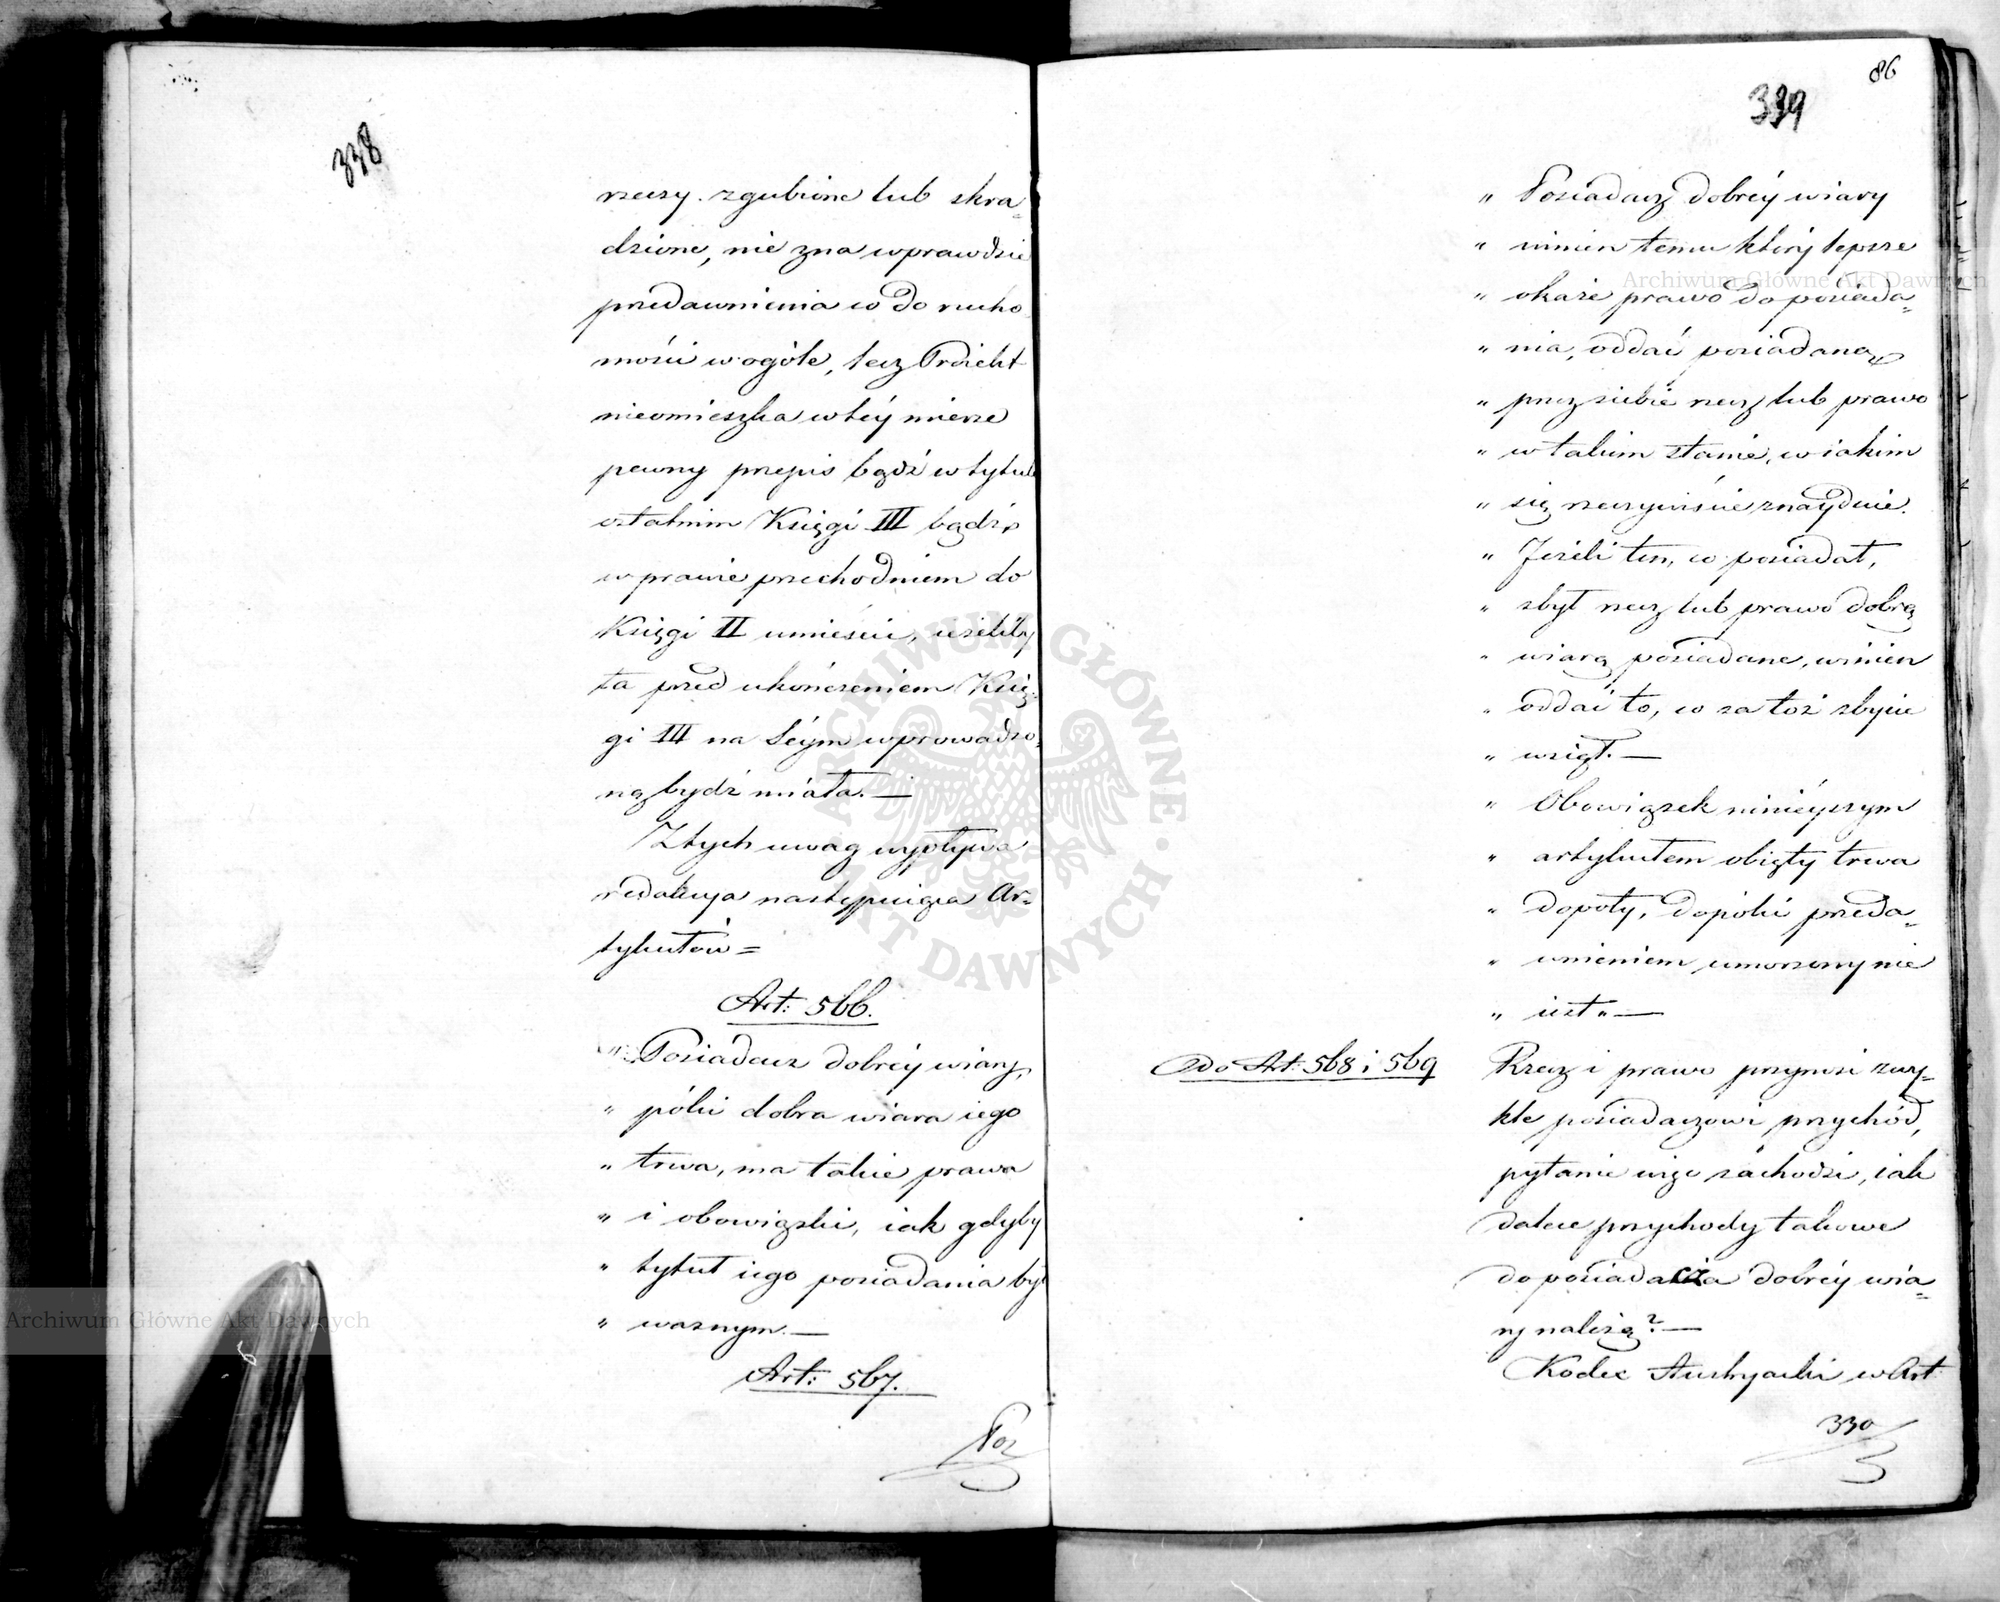 338
rzeczy zgubione lub skra=
dzione, nie zna wprawdzie
przedawnienia co do rucho
mości w ogóle, lecz Proiekt
nieomieszka w téy mierze
pewny przepis bądź w tytule
ostatnim Księgi III bądź
w prawie przechodniem do
Księgi II umieścić, ieżeliby
ta przed ukończeniem Księ=
gi III na Séym wprowadzo=
ną bydź miała.—
Z tych uwag wypływa
redakcya następuiąca Ar=
tykułów =
Art: 566.
" Posiadacz dobréy wiary,
" póki dobra wiara iego
" trwa, ma takie prawa
" i obowiązki, iak gdyby
" tytuł iego posiadania był
" ważnym.—
Art: 567.
Pos
86
339
" Posiadacz dobréy wiary
" winien temu który lepsze
" okaże prawo do posiada=
" nia, oddać posiadaną
" przez siebie rzecz lub prawo
" w takim stanie, w iakim
" się rzeczywiście znayduie.
" Jeżeli ten, co posiadał,
" zbył rzecz lub prawo dobrą
" wiarą posiadane, winien
" oddać to, co za toż zbycie
" wziął.—
" Obowiązek ninieyszym
" artykułem obięty trwa
" dopóty, dopóki przeda=
" wnieniem umorzony nie
" iest " —
Do Art: 568 i 569
Rzecz i prawo przynosi zwy=
kle posiadaczowi przychód,
pytanie więc zachodzi, iak
dalece przychody takowe
do posiadacza dobréy wia=
ry należą? —
Kodex Austryacki w Art
330
Archiwum Główne Akt Dawnych
Archiwum Główne Akt Dawnych
ARCHIWUM GŁÓWNE AKT DAWNYCH